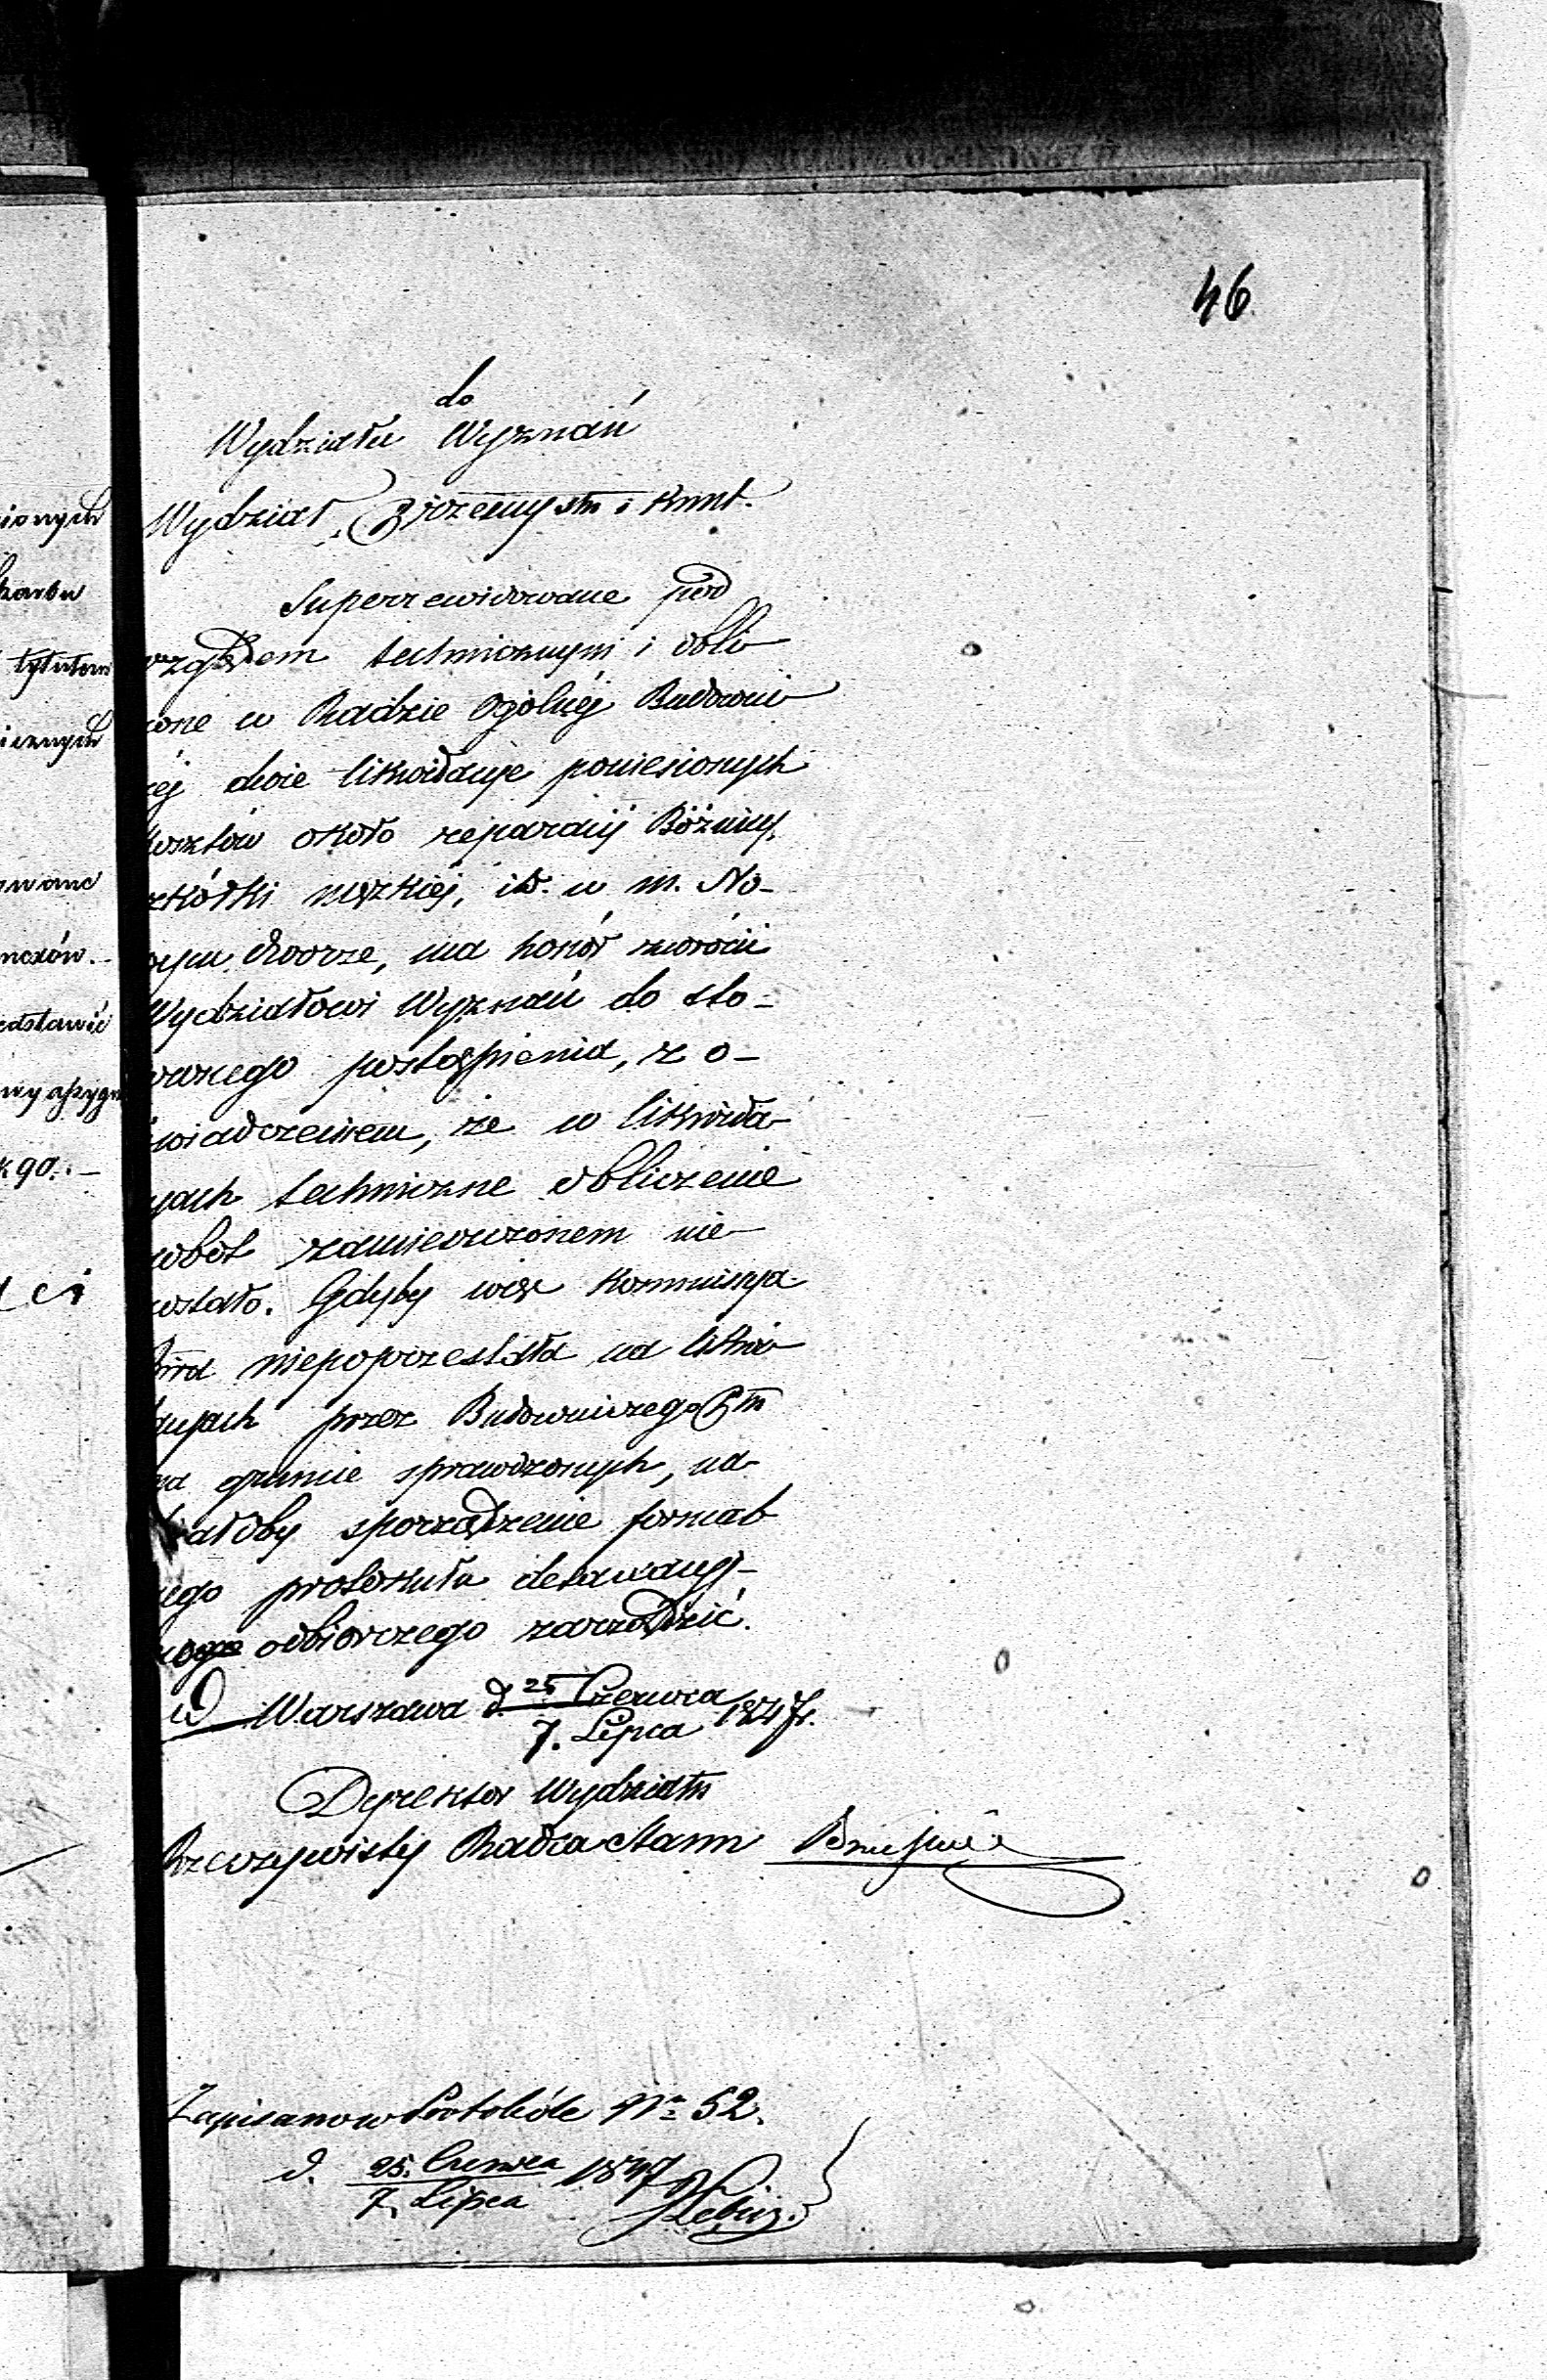 46
do
Wydziału Wyznań
Wydział Przemysłu i Kunst.
Superrewidowane pod
względem technicznym i obli-
czone w Radzie Ogólnéj Budowni-
czéj dwie likwidacye poniesionych
kosztów około reparacyi Bóżnicy,
szkółki męzkiéj, itd. w m. No-
wym Dworze, ma honor zwrócić
Wydziałowi Wyznań do sto-
sownego postąpienia, z o-
świadczeniem, że w likwida-
cyach techniczne obliczenie
robót zamieszczonem nie-
zostało. Gdyby więc Kommissya
Rząd niepoprzestała na likwi-
dacyach przez Budowniczego Ptu
na gruncie sprawdzonych, na-
leżałoby sporządzenie formal-
nego protokułu
odbiorczego zarządzić.
w Warszawa d. 25 Czerwca
7. Lipca 1847 r.
Dyrektor Wydziału
Rzeczywisty Radca Stanu
Zapisano w Protokóle Nr 52.
d. 25. Czerwca 1847
7. Lipca
ionych
karbu
tytułem
icznych
wane
nexów.
edstawić
k 90.
ci